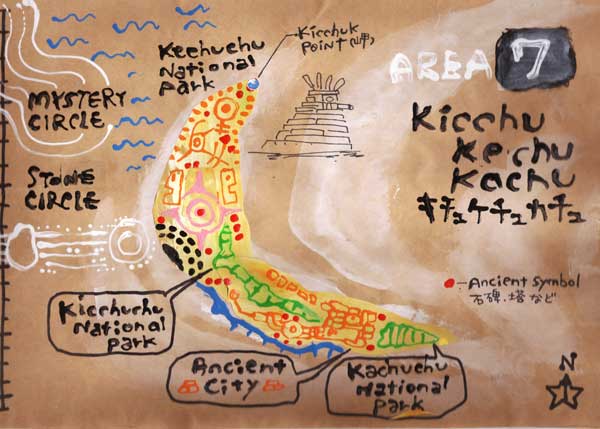 Kechuchu
National
Park
Kicchuk
Point(岬)
AREA 7
MYSTERY
CIRCLE
Kicchu
Kechu
Kachu
キチュケチュカチュ
STONE
CIRCLE
●:Ancient Symbol
石碑、塔など
Kicchuchu
National
Park
Ancient
City
Kachuchu
National
Park
N